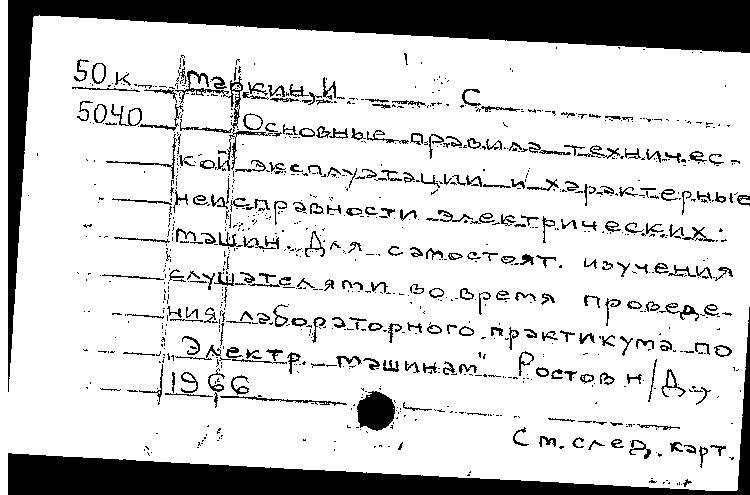 50к Маркин, И С
5040 Основные правила техничес-
кой эксплуатации и характерные
неисправности электрических
машин. Для самостоят. изучения
слушателями во время проведе-
ния лабораторного практикума по
"Электр. машинам" Ростов н/Д.,
1966.
См. след. карт.